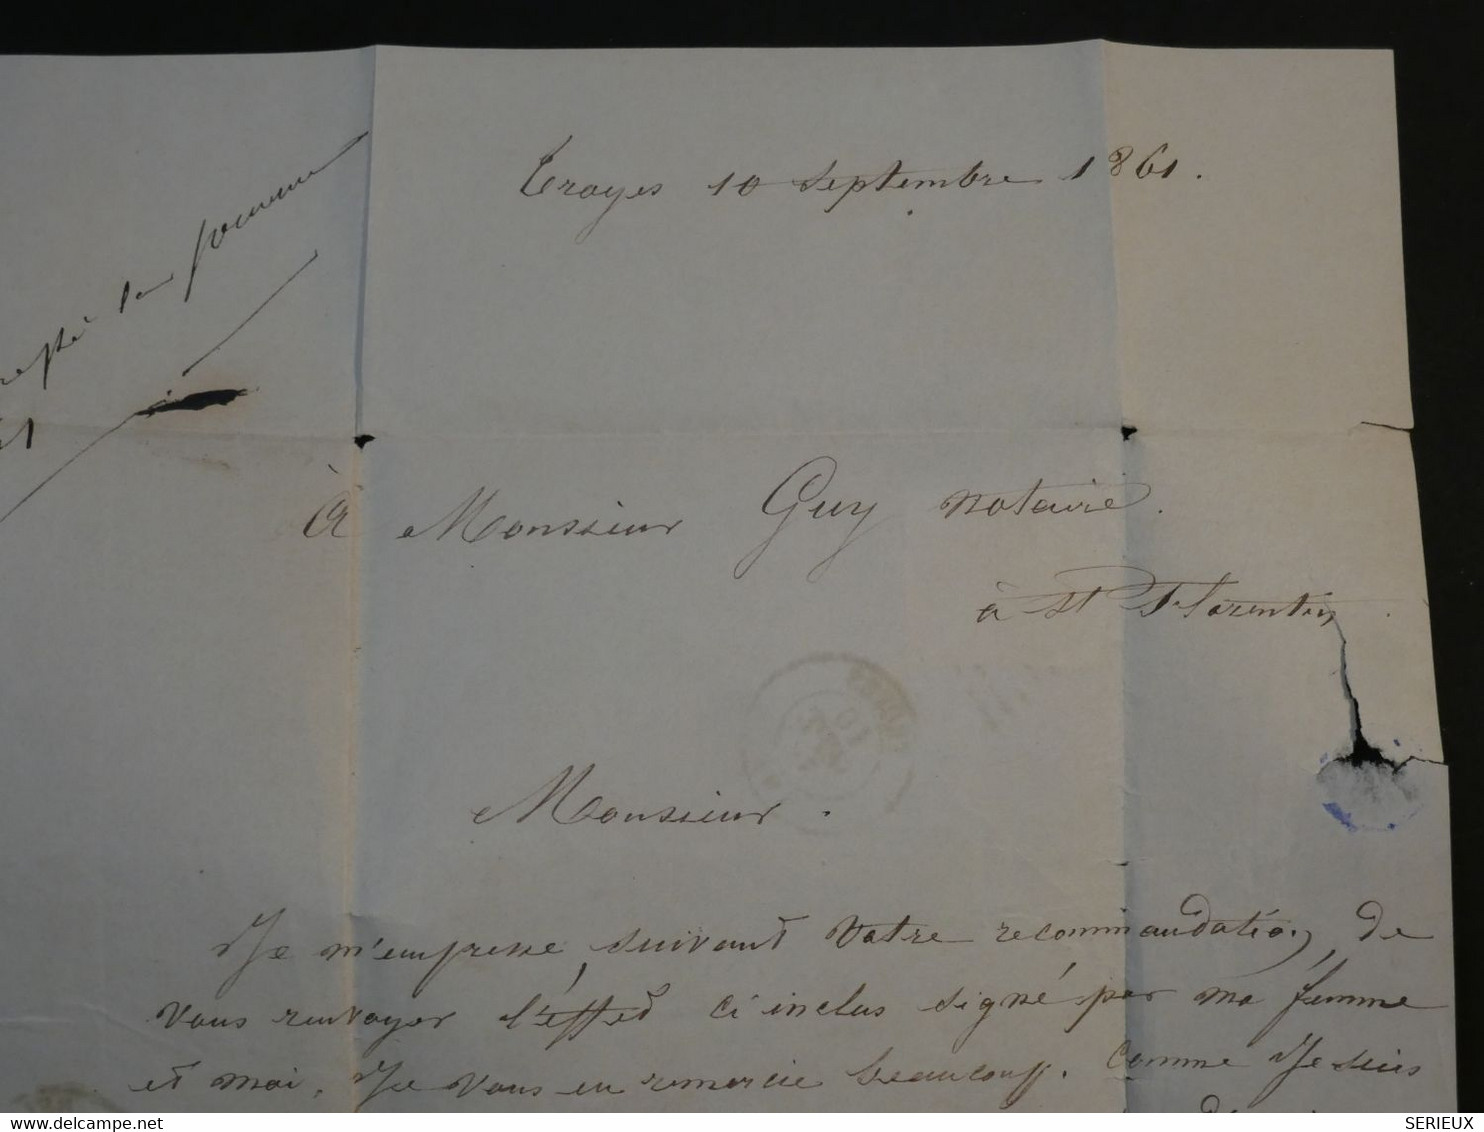 Troyes 10 Septembre 1861.
à Monsieur Guy notaire.
à St Florentin.
Monsieur.
Je m'empresse, suivant votre recommandation, de
vous renvoyer l'effet ci inclus signé par ma femme
et moi. Je vous en remercie beaucoup. Comme Je suis
SERIEUX